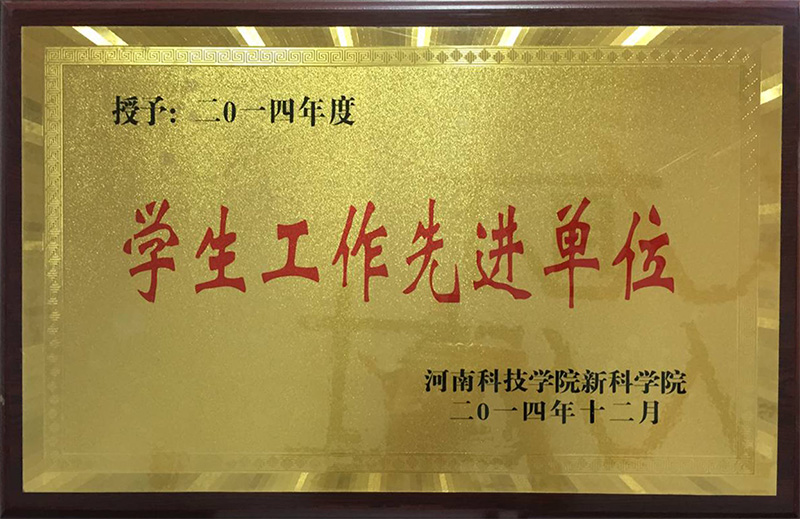 授予：二0一四年度
学生工作先进单位
河南科技学院新科学院
二0一四年十二月